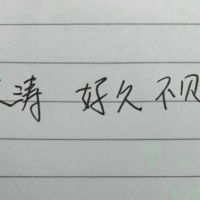 涛 好久不见